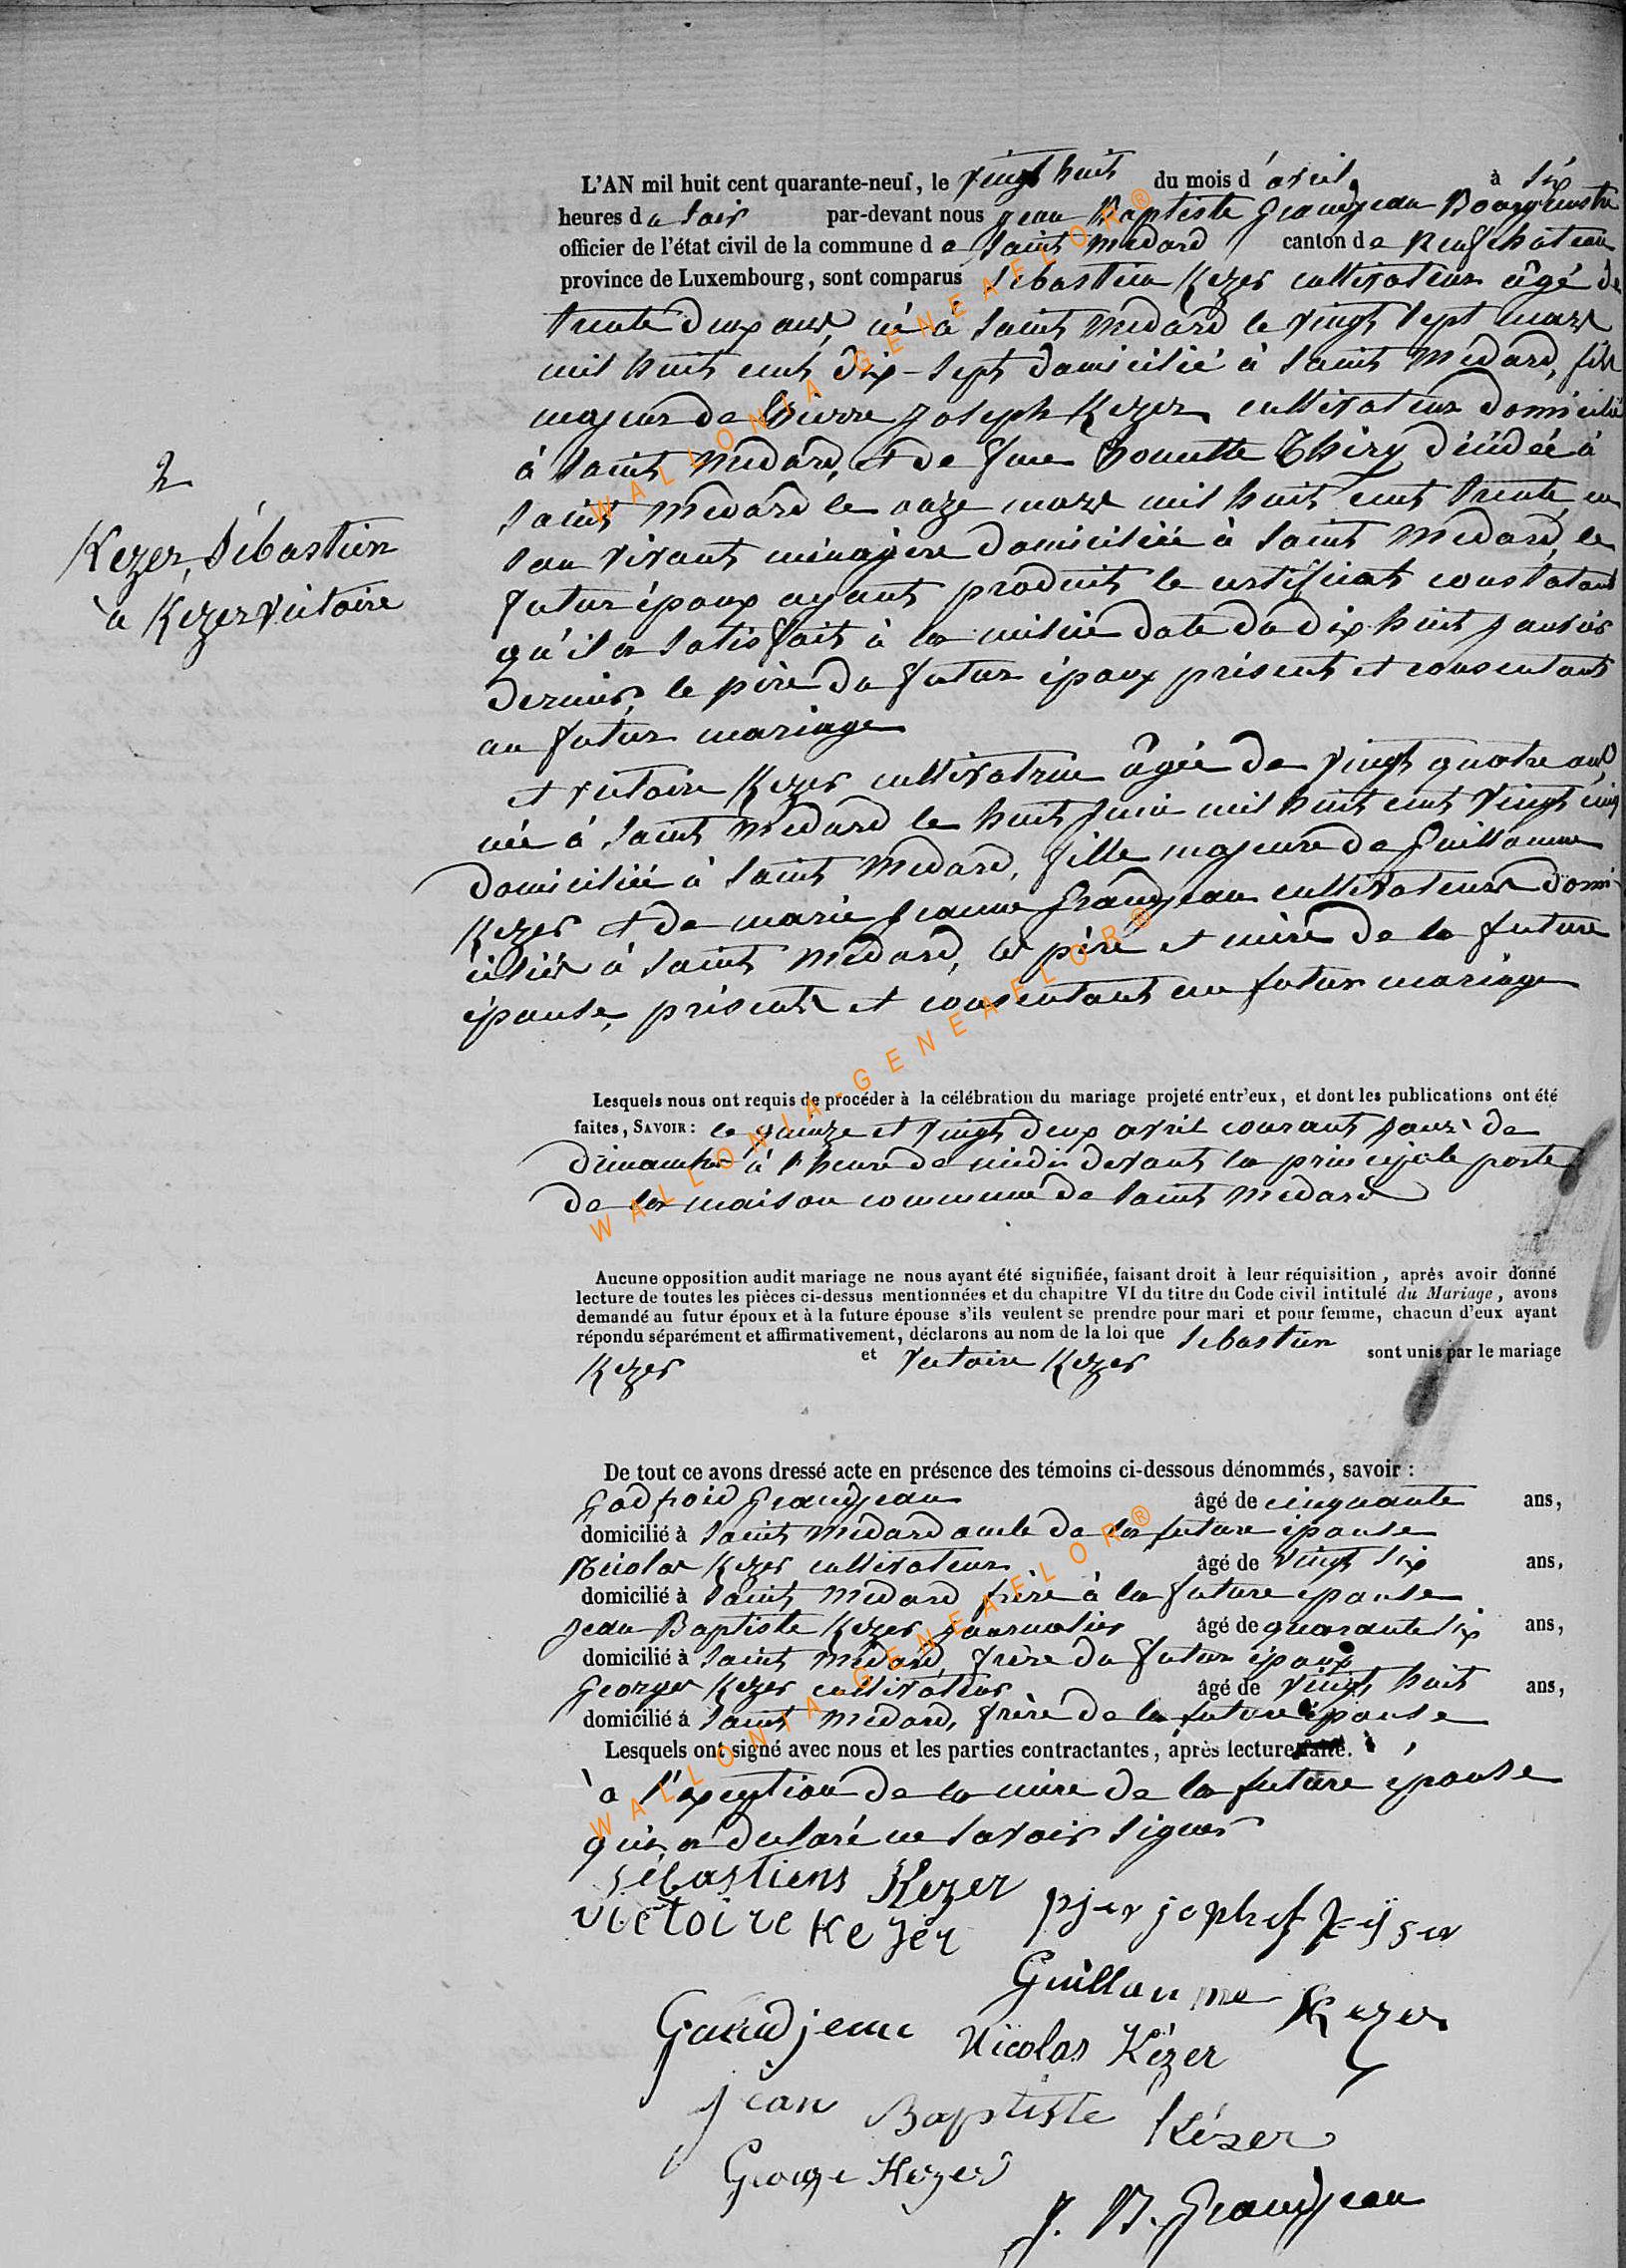 2
Kezer, Sébastien
à Kezer Victoire
L'AN mil huit cent quarante-neuf, le vingt huit du mois d'avril, à six
heures du soir par-devant nous Jean Baptiste Grandjean Bourgmestre
officier de l'état civil de la commune de Saint Médard canton de Neufchateau
province de Luxembourg, sont comparus Sebastien Kezer cultivateur âgé de
trente deux ans, né à Saint Médard le vingt sept mars
mil huit cent dix-sept domicilié à Saint Médard, fils
majeur de Pierre Joseph Kezer cultivateur domicilié
à Saint Médard, et de feue Thiry décédée à
Saint Médard le onze mars mil huit cent trente, en
son vivant ménagère domiciliée à Saint Médard, le
futur époux ayant produit le certificat constatant
qu'il a satisfait à la milice date du dix huit janvier
dernier, le père du futur époux présent et consentant
au futur mariage
et Victoire Kezer cultivatrice âgée de vingt quatre ans,
née à Saint Médard le huit juin mil huit cent vingt cinq
domiciliée à Saint Médard, fille majeure de Guillaume
Kezer et de marie Jeanne Grandjean cultivateurs domi-
ciliés à Saint Médard, les père et mère de la future
épouse, présents et consentant au futur mariage
Lesquels nous ont requis de procéder à la célébration du mariage projeté entr'eux, et dont les publications ont été
faites, SAVOIR: le quinze et vingt deux avril courant jours de
dimanche à l'heure de midi devant la principale porte
de la maison commune de Saint Médard
Aucune opposition audit mariage ne nous ayant été signifiée, faisant droit à leur réquisition, après avoir donné
lecture de toutes les pièces ci-dessus mentionnées et du chapitre VI du titre du Code civil intitulé du Mariage, avons
demandé au futur époux et à la future épouse s'ils veulent se prendre pour mari et pour femme, chacun d'eux ayant
répondu séparément et affirmativement, déclarons au nom de la loi que Sebastien
Kezer et Victoire Kezer sont unis par le mariage
De tout ce avons dressé acte en présence des témoins ci-dessous dénommés, savoir :
Godfroid Grandjean âgé de cinquante ans,
domicilié à Saint Médard oncle de la future épouse
Nicolas Kezer cultivateur âgé de vingt six ans,
domicilié à Saint Médard frère à la future épouse
Jean Baptiste Kezer journalier âgé de quarante six ans,
domicilié à Saint Médard, frère du futur époux
George Kezer cultivateur âgé de vingt huit ans,
domicilié à Saint Médard, frère de la future épouse
Lesquels ont signé avec nous et les parties contractantes, après lecture faite.
à l'exception de la mère de la future épouse
qui a declaré ne savoir signer
sébastiens Kezer
victoire Kezer
pjer jophes Keÿser
Guillaume Kezer
Grandjean Nicolas Kézer
jean Baptiste Kézer
George Kezer
J. B. Grandjean
WALLONIA-GENEAFLOR®
WALLONIA-GENEAFLOR®
WALLONIA-GENEAFLOR®